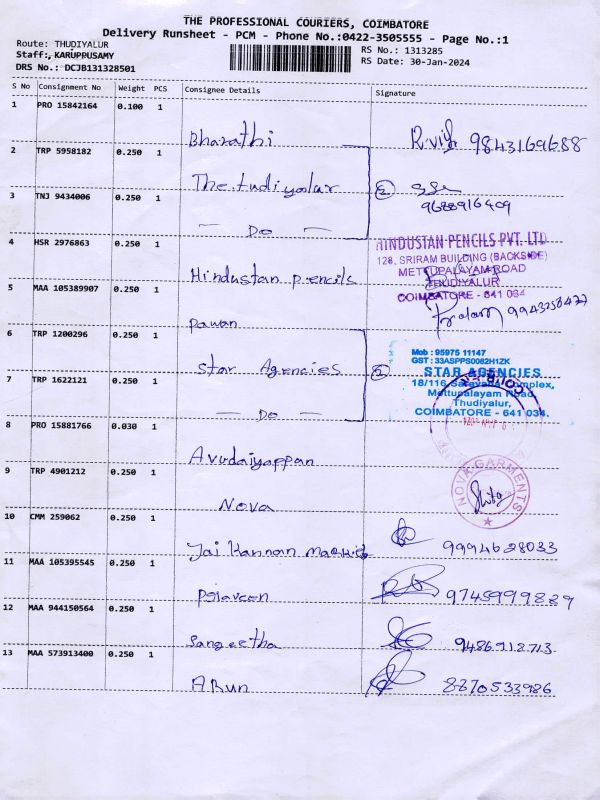 THE PROFESSIONAL COURIERS, COIMBATORE
Delivery Runsheet - PCM - Phone No.:0422-3505555 - Page No.:1
Route: THUDIYALUR
Staff:, KARUPPUSAMY
DRS No.: DCJB131328501
RS No.: 1313285
RS Date: 30-Jan-2024
S No Consignment No Weight PCS Consignee Details Signature
1 PRO 15842164 0.100 1
Bharathi 9843169688
2 TRP 5958182 0.250 1
The.tudiyalur 2
9688916409
3 TNJ 9434006 0.250 1
— Do —
4 HSR 2976863 0.250 1
HINDUSTAN PENCILS PVT. LTD
128, SRIRAM BUILDING (BACKSIDE)
METTUPALAYAM ROAD
THUDIYALUR
COIMBATORE - 641 034
Hindustan pencils
5 MAA 105389907 0.250 1
Pawan 9943258427
6 TRP 1200296 0.250 1
Star Agencies 2
Mob : 95975 11147
GST : 33ASPPS0082H1ZK
STAR AGENCIES
18/116 Saravana Complex,
Mettupalayam Road
Thudiyalur,
COIMBATORE - 641 034.
7 TRP 1622121 0.250 1
— Do —
8 PRO 15881766 0.030 1
Avudaiyappan
9 TRP 4901212 0.250 1
Nova
NOVA GARMENTS
10 CMM 259062 0.250 1
Jai Kannan 9994628033
11 MAA 105395545 0.250 1
Praveen 9745999829
12 MAA 944150564 0.250 1
Sangeetha 9486912713
13 MAA 573913400 0.250 1
Arun 8870533986